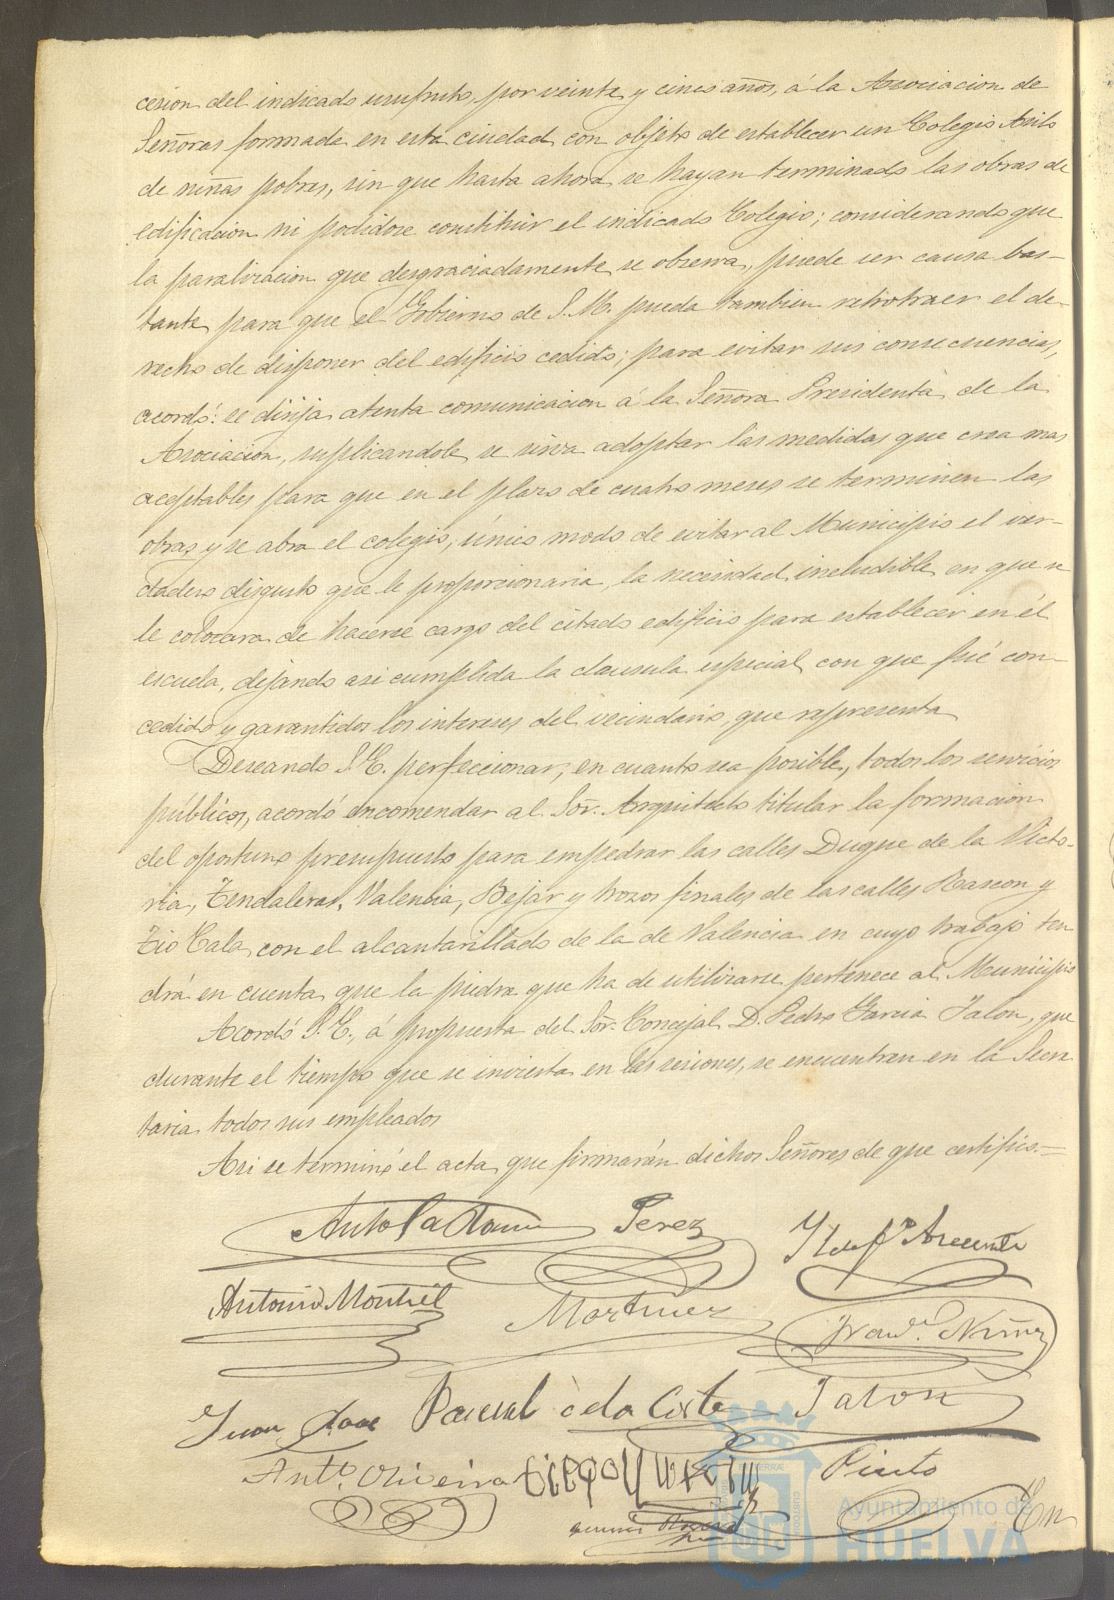 cesion del indicado usufruto, por veinte y cinco años, á la Asociacion de
Señoras formada en esta ciudad con objeto de establecer un Colegio Asilo
de niñas pobres, sin que hasta ahora se hayan terminado las obras de
edificacion ni podidose constituir el indicado Colegio; considerando que
la paralizacion que desgraciadamente se observa, puede ser causa bas-
tante para que el Gobierno de S. M. pueda tambien retrotraer el de-
recho de disponer del edificio cedido; para evitar sus consecuencias,
acordó: se dirija atenta comunicacion á la Señora Presidenta de la
Asociacion, suplicandole se sirva adoptar las medidas que crea mas
aceptables para que en el plazo de cuatro meses se terminen las
obras y se abra el colegio, único modo de evitar al Municipio el ver-
dadero disgusto que le proporcionaria la necesidad ineludible en que se
le colocara de hacerse cargo del citado edificio para establecer en él
escuela, dejando asi cumplida la clausula especial con que fué con-
cedido y garantidos los intereses del vecindario que representa
Deseando S. E. perfeccionar, en cuanto sea posible, todos los servicios
públicos, acordó encomendar al Sor. Arquitecto titular la formacion
del oportuno presupuesto para empedrar las calles Duque de la Victo-
ria, Tendaleras, Valencia, Bejar y trozos finales de las calles Rascon y
Tio Cala, con el alcantarillado de la de Valencia en cuyo trabajo ten
drá en cuenta que la piedra que ha de utilizarse pertenece al Municipio
Acordó S. E., á propuesta del Sor. Concejal D. Pedro Garcia Jalon, que
durante el tiempo que se invierta en las sesiones, se encuentren en la Secre
taria todos sus empleados
Asi se terminó el acta que firmarán dichos Señores de que certifico.=
Perez
Antonio Montiel Martinez Franco. Nuñez
Juan Pascual de la Corte Jalon
Anto. Oliveira Pinto
En
Ayuntamiento de
HUELVA